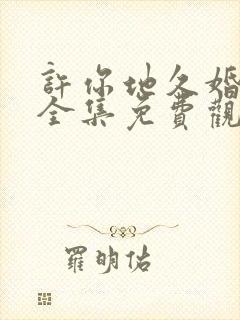 許你地久婚
全集免費觀
羅明佑